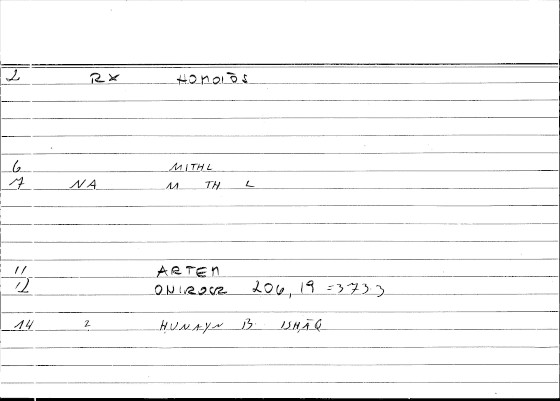 2 RX HOMOIŌS
6 MITHL
7 NA M TH L
11 ARTEM
12 ONIROCR 206, 19 = 373 3
14 2 HUNAYN B ISHĀQ